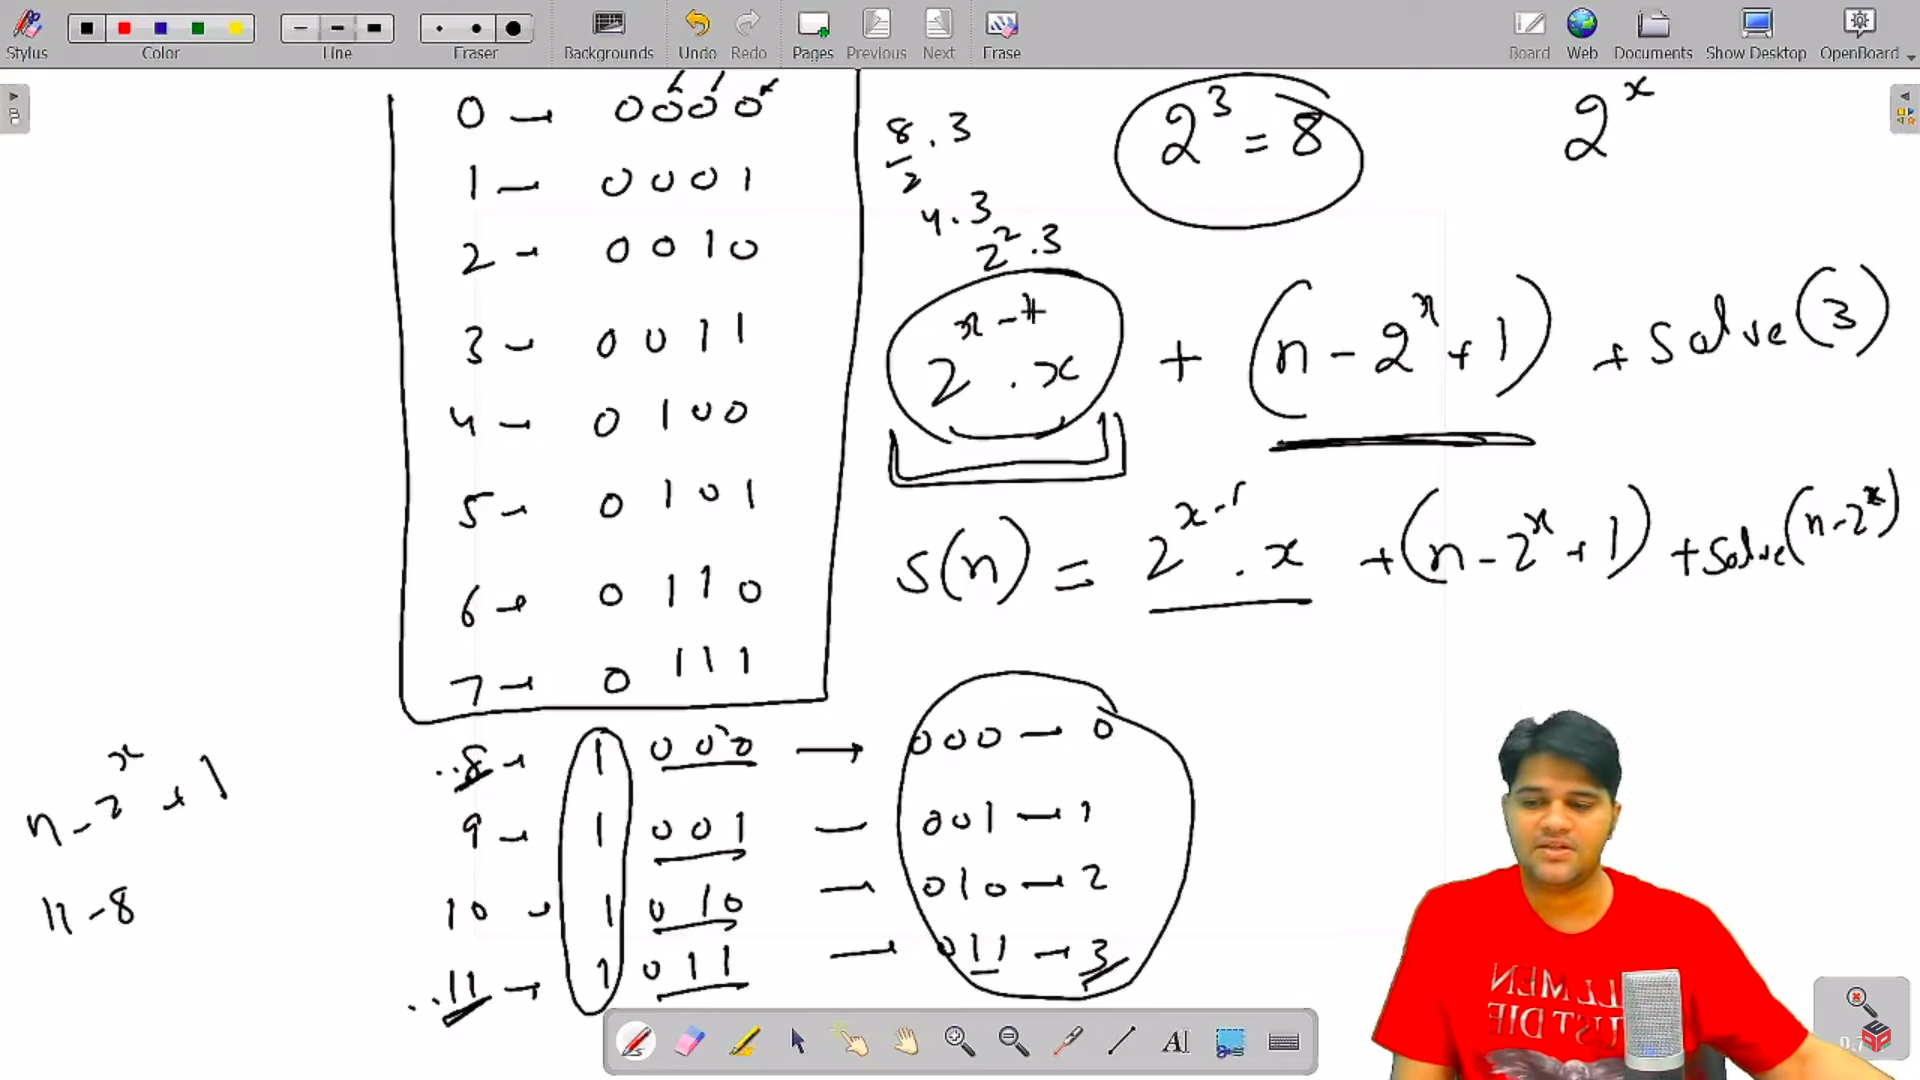 Stylus
Color
Line
Eraser
Backgrounds
Undo
Redo
Pages
Previous
Next
Erase
Board
Web
Documents
Show Desktop
OpenBoard
0 → 0 0 0 0
1 → 0 0 0 1
2 → 0 0 1 0
3 → 0 0 1 1
4 → 0 1 0 0
5 → 0 1 0 1
6 → 0 1 1 0
7 → 0 1 1 1
8 → 1 0 0 0 → 000 — 0
9 → 1 0 0 1 — 001 — 1
10 → 1 0 1 0 — 010 — 2
11 → 1 0 1 1 — 011 — 3
8/2 . 3
4 . 3
2² . 3
2³ = 8
2ˣ
2ˣ⁻¹ . x + (n - 2ˣ + 1) + solve(3)
s(n) = 2ˣ⁻¹ . x + (n - 2ˣ + 1) + solve(n - 2ˣ)
n - 2ˣ + 1
11 - 8